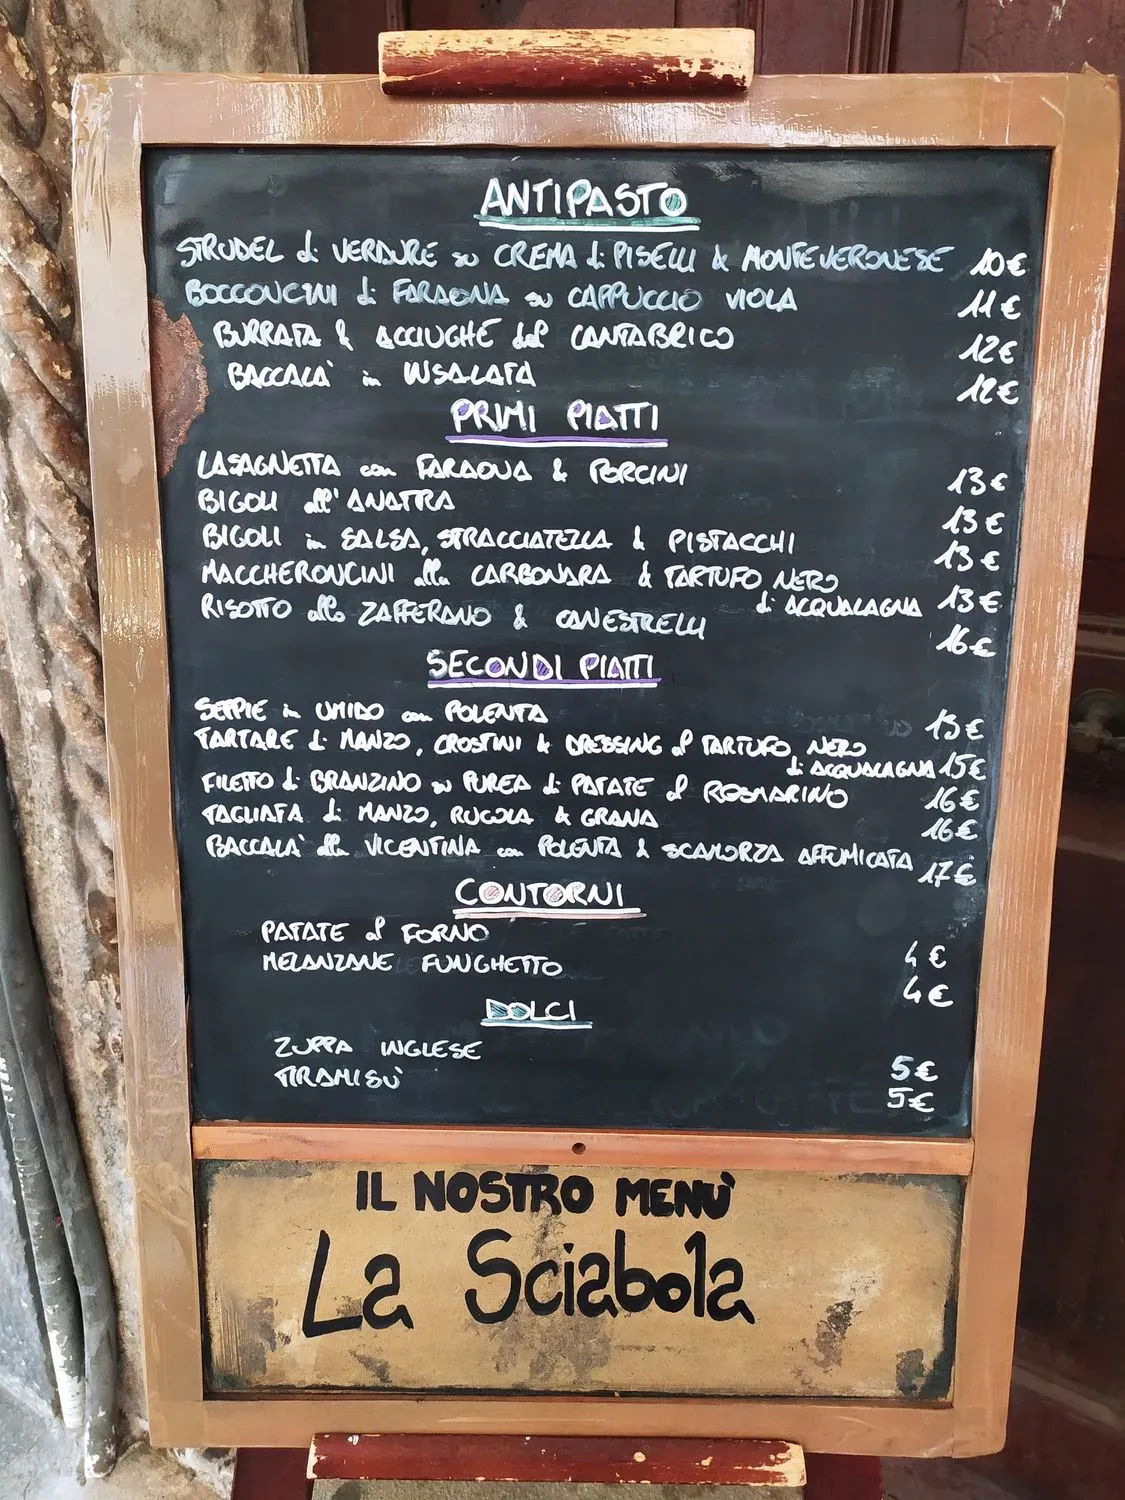 ANTIPASTO
STRUDEL di VERDURE su CREMA di PISELLI & MONTEVERONESE 10€
BOCCONCINI di FARAONA su CAPPUCCIO VIOLA 11€
BURRATA & ACCIUGHE del CANTABRICO 12€
BACCALA' in INSALATA 12€
PRIMI PIATTI
LASAGNETTA con FARAONA & PORCINI 13€
BIGOLI all' ANATRA 13€
BIGOLI in SALSA, STRACCIATELLA & PISTACCHI 13€
MACCHERONCINI alla CARBONARA & TARTUFO NERO
di ACQUALAGNA 13€
RISOTTO allo ZAFFERANO & CANESTRELLI 16€
SECONDI PIATTI
SEPPIE in UMIDO con POLENTA 15€
TARTARE di MANZO, CROSTINI & DRESSING al TARTUFO NERO
di ACQUALAGNA 15€
FILETTO di BRANZINO su PUREA di PATATE al ROSMARINO 16€
TAGLIATA di MANZO, RUCOLA & GRANA 16€
BACCALA' alla VICENTINA con POLENTA & SCAMORZA AFFUMICATA 17€
CONTORNI
PATATE al FORNO 4€
MELANZANE FUNGHETTO 4€
DOLCI
ZUPPA INGLESE 5€
TIRAMISÙ 5€
IL NOSTRO MENÙ
La Sciabola